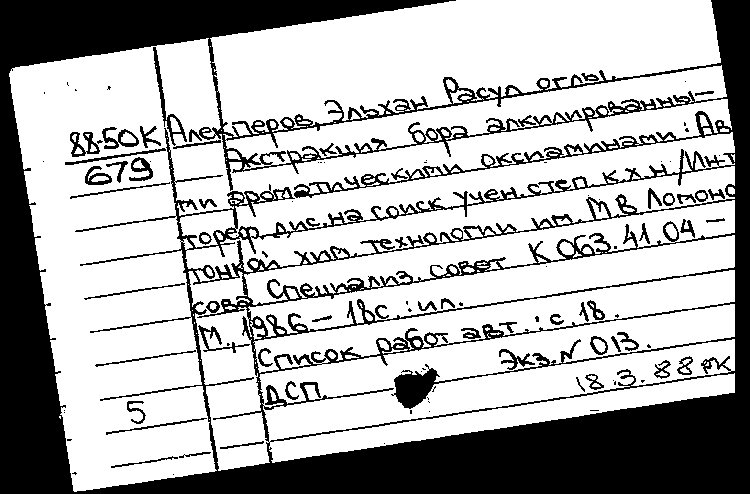 88-50К
679
Алекперов, Эльхан Расул оглы.
Экстракция бора алкилированны-
ми ароматическими оксиаминами : Ав
тореф. дис. на соиск. учен. степ. к.х.н. /Ин-т
тонкой хим. технологии им. М В Ломоно
сова. Специализ. совет К 063.41.04. –
М., 1986 – 18с. : ил.
Список работ авт. : с. 18.
ДСП. Экз. N 013.
5 18.3.88